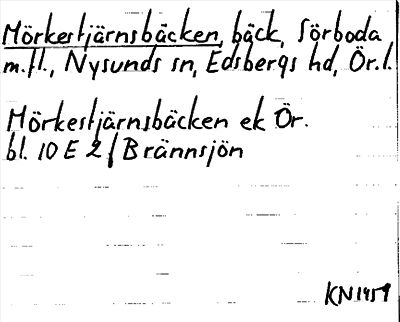 Mörkestjärnsbäcken, bäck, Sörboda
m.fl., Nysunds sn, Edsbergs hd, Ör.l.
Mörkestjärnsbäcken ek Ör.
bl. 10 E 2 f Brännsjön
KN 1959